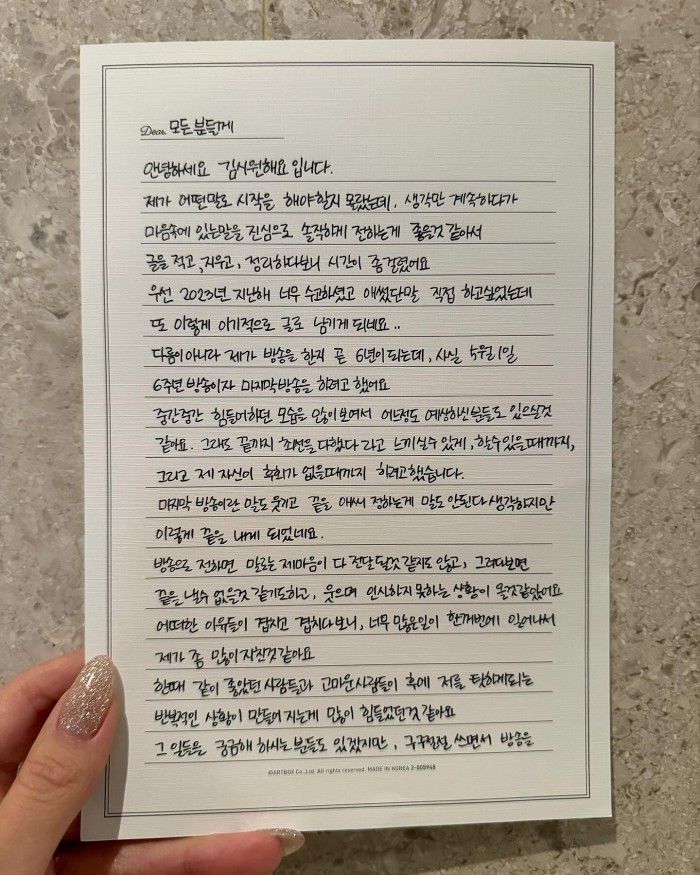 Dear. 모든 분들께
안녕하세요 김시원해요 입니다.
제가 어떤말로 시작을 해야할지 몰랐는데, 생각만 계속하다가
마음속에 있는말을 진심으로 솔직하게 전하는게 좋을것 같아서
글을 적고, 지우고, 정리하다보니 시간이 좀 걸렸어요
우선 2023년 지난해 너무 수고하셨고 애썼단말 직접 하고싶었는데
또 이렇게 이기적으로 글로 남기게 되네요..
다름이아니라 제가 방송을 한지 곧 6년이 되는데, 사실 5월 1일
6주년 방송이자 마지막방송을 하려고 했어요
중간중간 힘들어하던 모습을 많이 보여서 어느정도 예상하신분들도 있으실것
같아요. 그래도 끝까지 최선을 다했다 라고 느끼실수 있게, 할수있을때까지,
그리고 제 자신이 후회가 없을때까지 하려고했습니다.
마지막 방송이란 말도 웃기고 끝을 애써 정하는게 말도 안된다 생각하지만
이렇게 끝을 내게 되었네요.
방송으로 전하면 말로는 제마음이 다 전달될것 같지도 않고, 그러다보면
끝을 낼수 없을것 같기도하고, 웃으며 인사하지 못하는 상황이 올것같았어요
어떠한 이유들이 겹치고 겹치다보니, 너무 많은일이 한꺼번에 일어나서
제가 좀 많이 지친것같아요
한때 같이 좋았던 사람들과 고마운사람들이 후에 저를 탓하게되는
반복적인 상황이 만들어 지는게 많이 힘들었던것 같아요
그 일들을 궁금해 하시는 분들도 있겠지만, 구구절절 쓰면서 방송을
©ARTBOX Co.,Ltd All rights reserved. MADE IN KOREA 2-005948